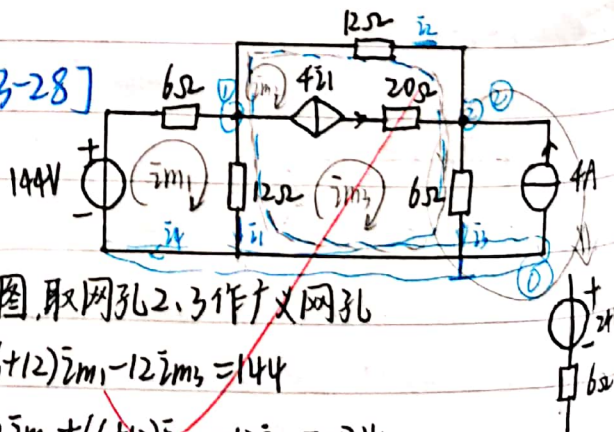 3-28]
12Ω i2
6Ω ① im2 4i1 20Ω ② ②
144V + - im1 12Ω im3 6Ω 4A
i4 i1 i3 ⓪
图,取网孔2、3作广义网孔 + -
+12)im1-12im3=144
6Ω